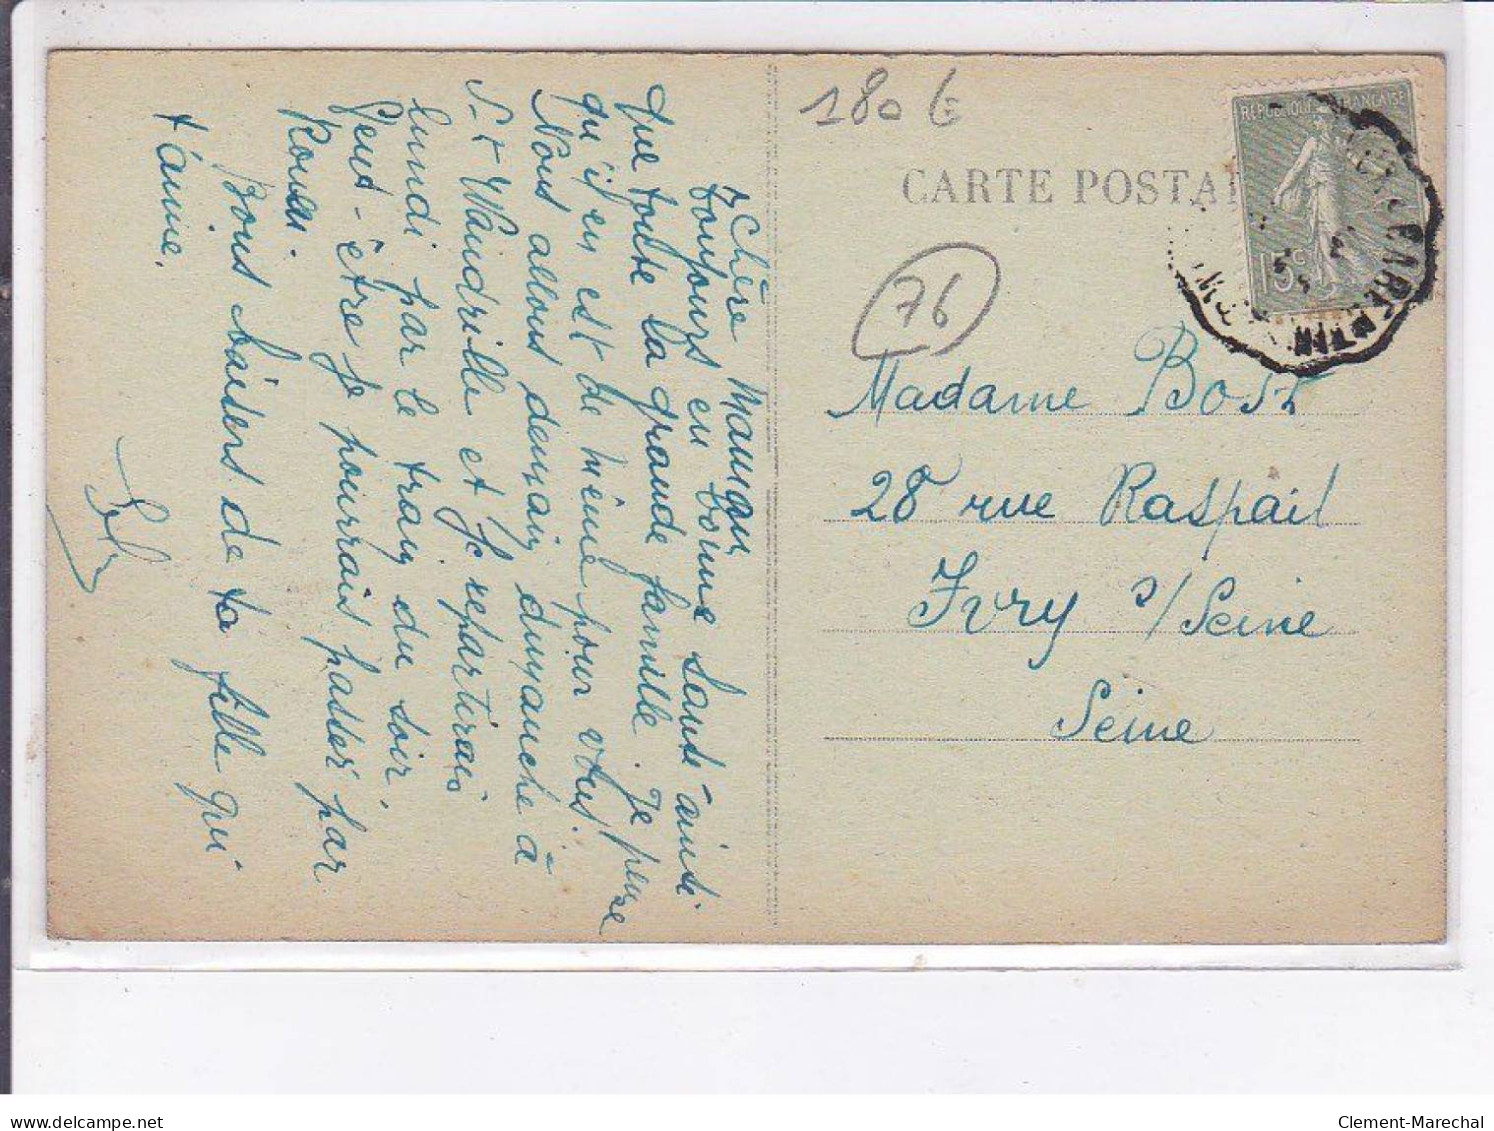 180 €
CARTE POSTA
RÉPUBLIQUE FRANÇAISE
15c
BARENTIN
76
Chère Maman
Toujours en bonne santé ainsi
que toute la grande famille. Je pense
qu'il en est de même pour vous.
Nous allons demain dimanche à
St Wandrille et je repartirais
lundi par le train du soir.
Peut-être je pourrais passer par
Rouen.
Bons baisers de ta fille qui
t'aime.
Madame Bost
28 rue Raspail
Ivry s/Seine
Seine
Clement-Marechal
delcampe.net